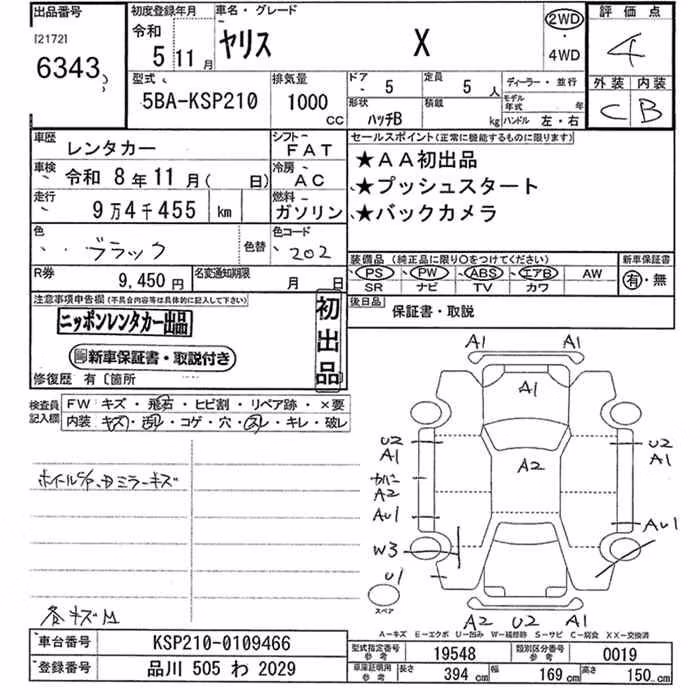 出品番号
[2172]
6343
初度登録年月
令和
5年11月
車名・グレード
ヤリス X
2WD
・
4WD
評価点
4
外装 内装
C B
型式
5BA-KSP210
排気量
1000
CC
ドア 5
定員 5人
形状 ハッチB
積載 kg
ディーラー・並行
モデル年式 年
ハンドル 左・右
車歴 レンタカー
シフト FAT
車検 令和 8年11月( 日)
冷房 AC
走行 9万4千455 km
燃料 ガソリン
色 ブラック
色替
色コード 202
R券 9,450円
名変通知期限 月 日
セールスポイント(正常に機能するものに限ります)
★AA初出品
★プッシュスタート
★バックカメラ
装備品(純正品に限り○をつけてください)
新車保証書
PS PW ABS エアB AW
SR ナビ TV カワ
有・無
後日品
保証書・取説
注意事項申告欄(不具合内容等は具体的に記入して下さい)
ニッポンレンタカー出品
新車保証書・取説付き
初出品
修復歴 有〔箇所
検査員記入欄
FW キズ・飛石・ヒビ割・リペア跡・×要
内装 キズ・汚レ・コゲ・穴・スレ・キレ・破レ
A1 A1
A1
U2
A1
A2
U2
A1
A2
AU1
AU1
W3
U1
スペア
A2 U2 A1
A-キズ E-エクボ U-凹み W-補修跡 S-サビ C-腐食 XX-交換済
車台番号 KSP210-0109466
登録番号 品川 505 わ 2029
型式指定番号 参考 19548
類別区分番号 参考 0019
車庫証明用 参考 長さ 394cm 幅 169cm 高さ 150cm